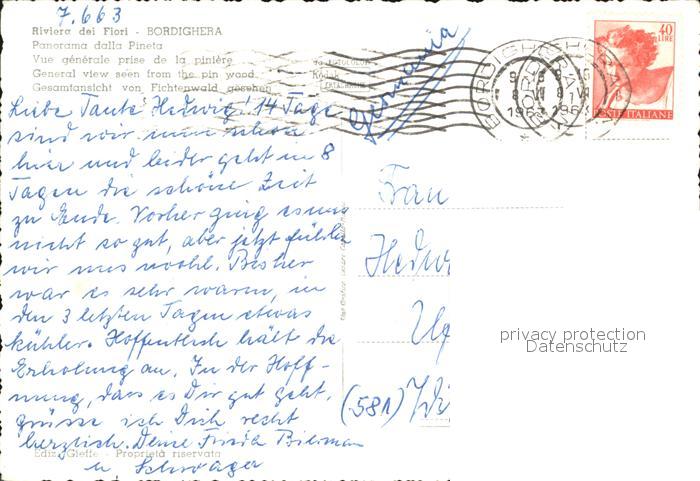 7.6.63
Riviera dei Fiori - BORDIGHERA
Panorama dalla Pineta
Vue générale prise de la pinière
General view seen from the pin wood
Gesamtansicht von Fichtenwald gesehen
Germania
BORDIGHERA
40
LIRE
POSTE ITALIANE
Liebe Tante Hedwig! 14 Tage
sind wir nun schon
hier und leider geht in 8
Tagen die schöne Zeit
zu Ende. Vorher ging es uns
nicht so gut, aber jetzt fühlen
wir uns wohl. Bisher
war es sehr warm, in
den 3 letzten Tagen etwas
kühler. Hoffentlich hält die
Erholung an. In der Hoff-
nung, dass es Dir gut geht,
grüsse ich Dich recht
herzlich. Deine Frieda
u Schwager
Frau
Hedw
(581) Wi
privacy protection
Datenschutz
Ediz. Gieffe - Proprietà riservata